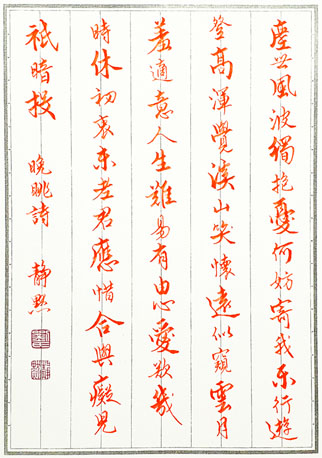 塵世風波獨抱憂何妨寄我行遊
登高渾覺溪山笑懷遠似窺雲月
羞適意人生難易有由心愛歎幾
時休初衷老君應惜合與癡兒
祇暗投 晚眺詩 靜